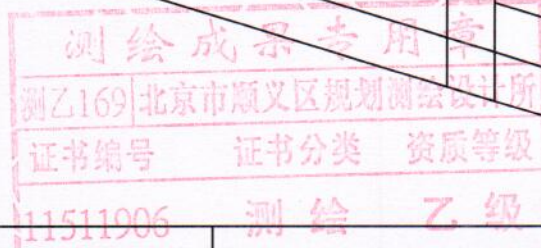 测绘成果专用章
测乙169 北京市顺义区规划测绘设计所
证书编号 证书分类 资质等级
11511906 测绘 乙级